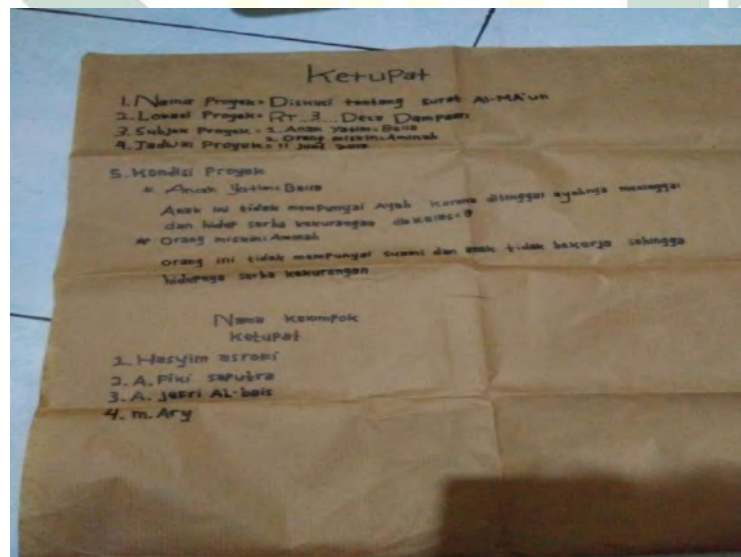 Ketupat
1. Nama Proyek = Diskusi tentang surat Al-MA'un
2. Lokasi Proyek = RT 3 Desa Dampaan
3. Subjek Proyek = 1. Anak Yatim:
2. Orang miskin: Aminah
4. Jadwal Proyek = 11
5. Kondisi Proyek
* Anak Yatim:
Anak ini tidak mempunyai Ayah karena ditinggal ayahnya meninggal
dan hidup serba kekurangan
* Orang miskin: Aminah
orang ini tidak mempunyai suami dan anak tidak bekerja sehingga
hidupnya serba kekurangan
Nama Kelompok
Ketupat
1. Hasyim asrofi
2. A. Fiki saputra
3. A. Jefri AL-bais
4. m. Ary